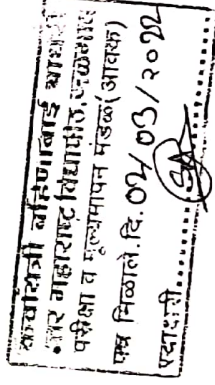 कवयित्री बहिणाबाई चौधरी
उत्तर महाराष्ट्र विद्यापीठ, जळगांव
परीक्षा व मूल्यमापन मंडळ(आवक)
पत्र मिळाले.दि. 02/03/२०२२
पदाधारी